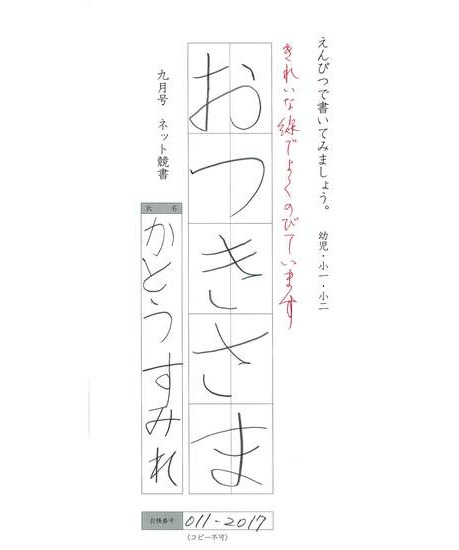 えんぴつで書いてみましょう。 幼児・小一・小二
きれいな線でよくのびています
おつきさま
九月号 ネット競書
氏名
かとうすみれ
台帳番号 011-2017
(コピー不可)